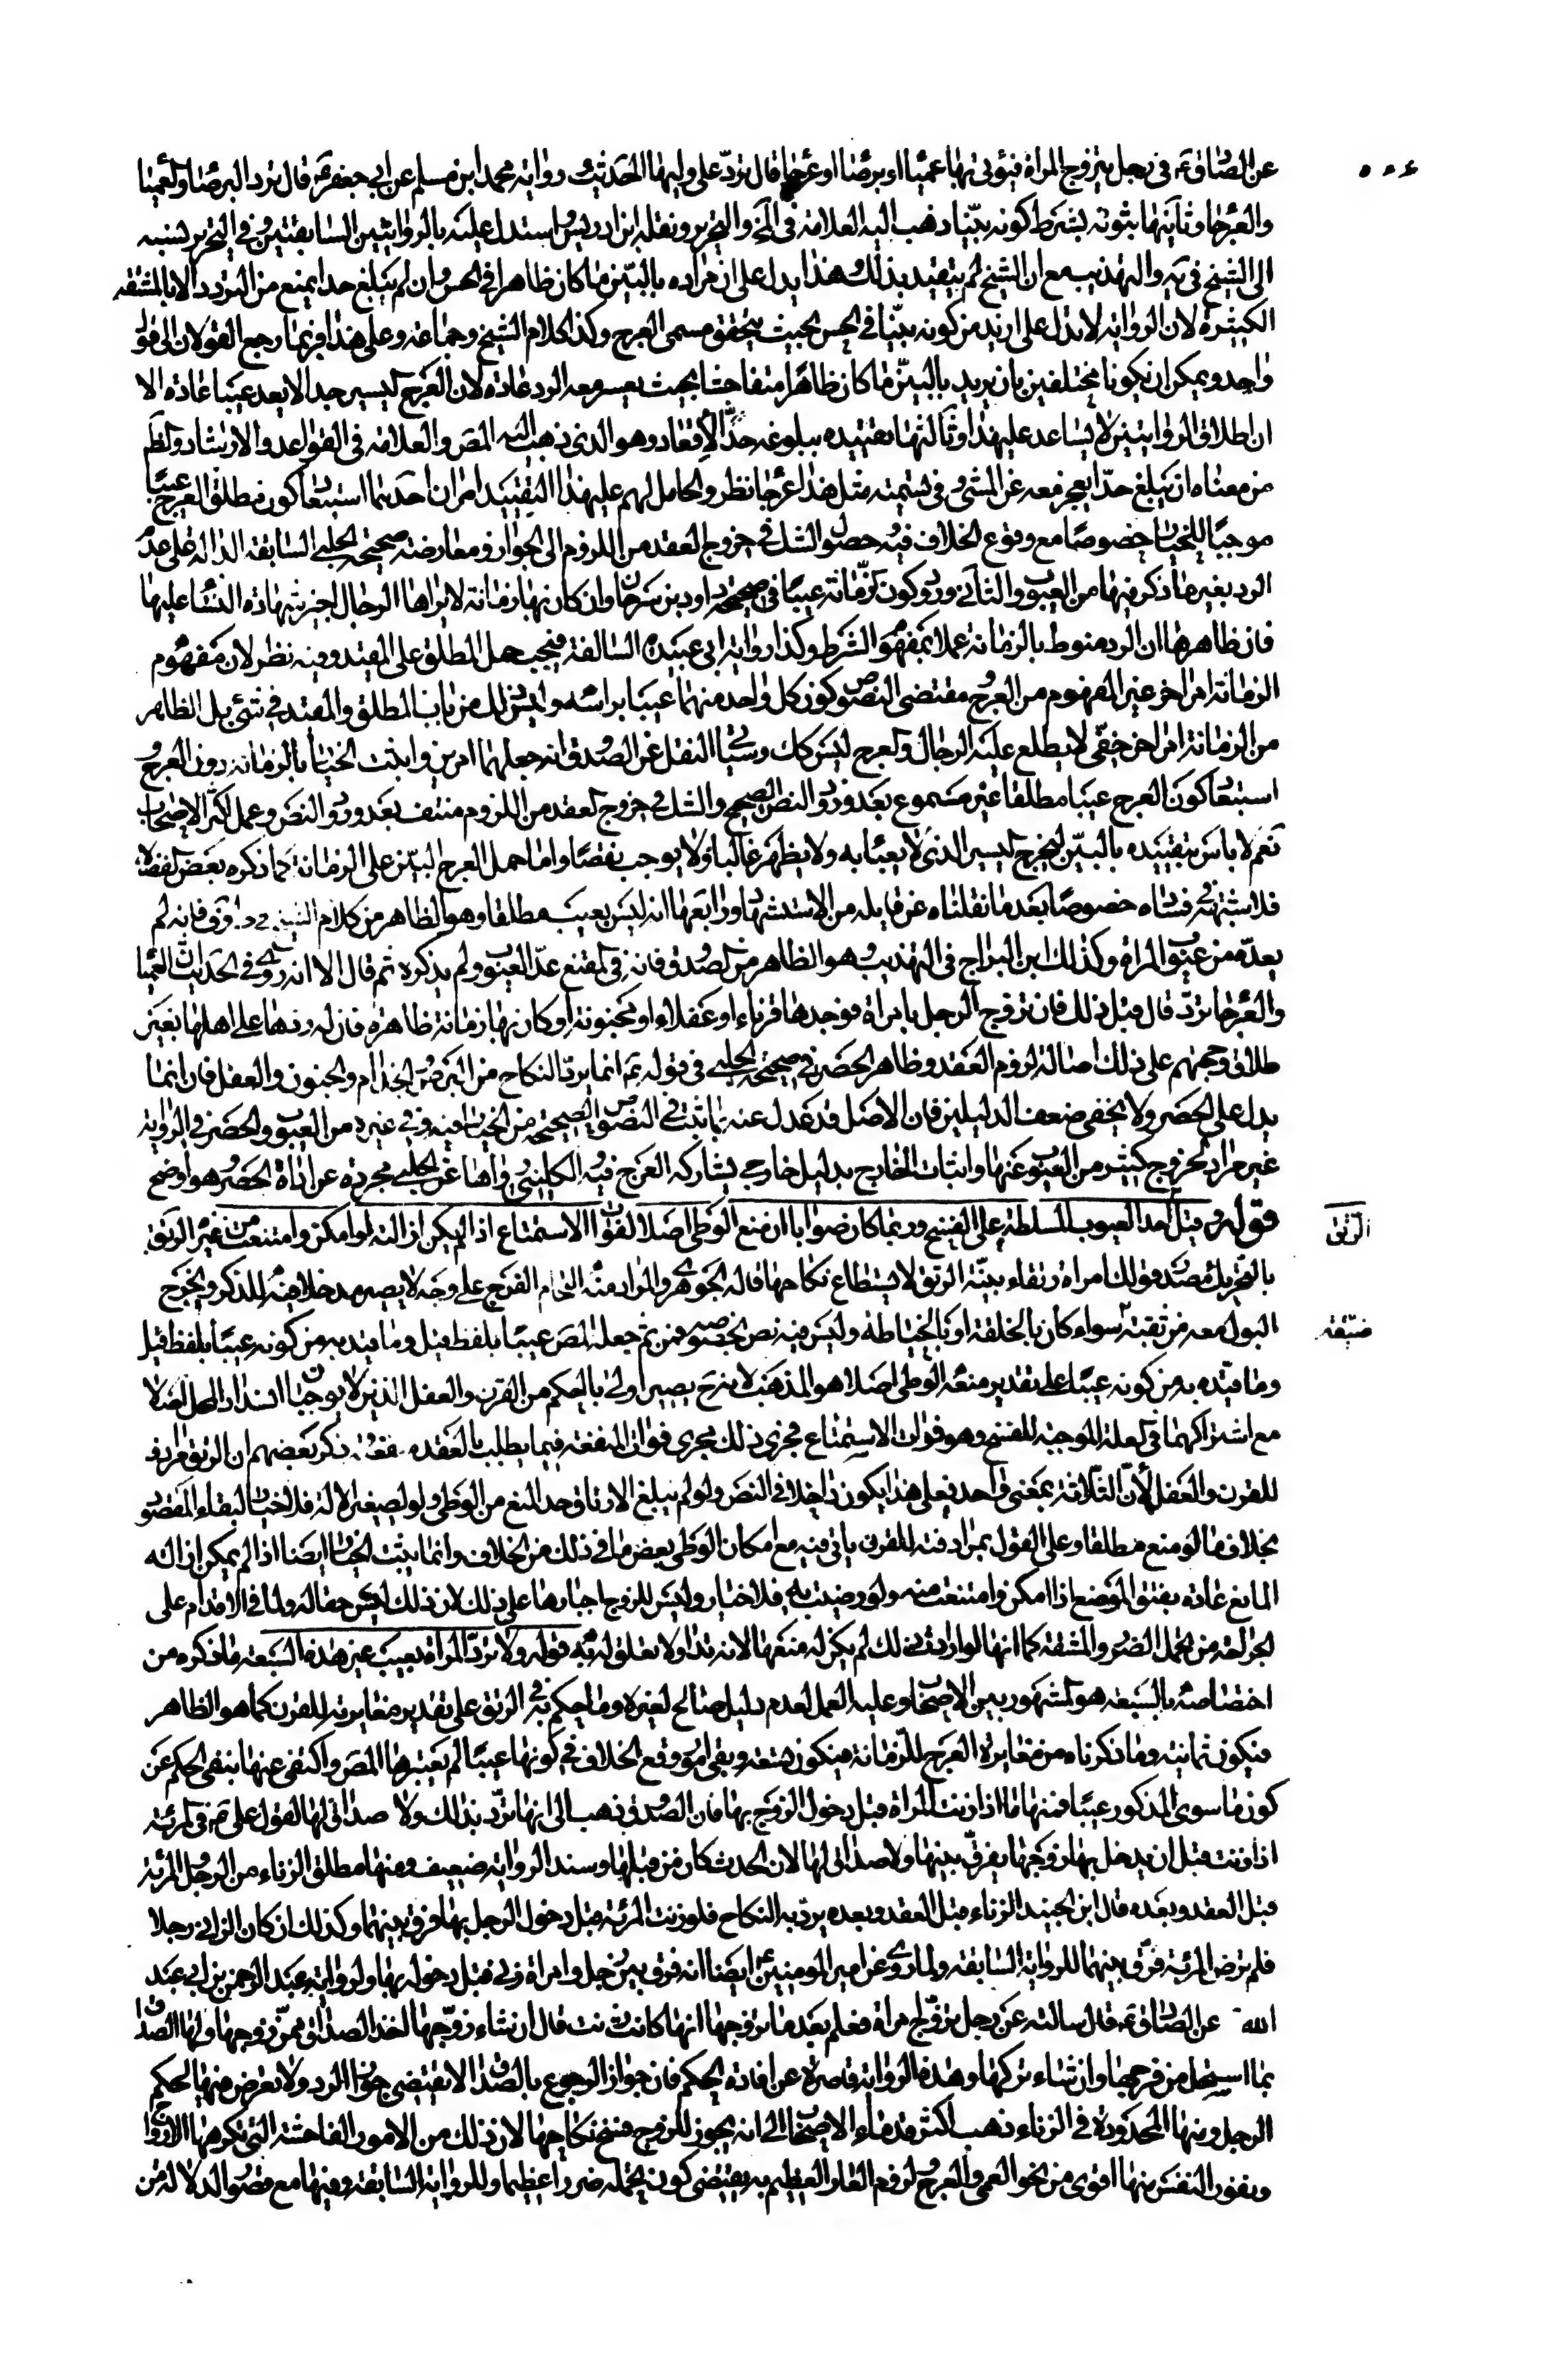 ٥٠٤
عن الصادق ع في رجل يتزوج المراة فيؤتى بها عمياء او برصاء او عرجاء قال ترد على وليها الحديث ورواية محمد ابن مسلم عن ابي جعفر ع قال ترد البرصاء والعمياء
والعرجاء وثانيها ثبوته بشرط كونه بينا ذهب اليه العلامة في المخ والتحرير ونقله ابن ادريس واستدل عليه بالروايتين السابقتين وفي التحرير نسبه
الى الشيخ في يه والتهذيب مع ان الشيخ لم يتقيد بذلك وهذا يدل على ان مراده بالبين ما كان ظاهرا في الحس وان لم يبلغ حدا يمنع من التردد الا بالمشقة
الكثيرة لان الرواية لا تدل على ازيد من كونه بينا في الحس بحيث يتحقق مسمى العرج وكذا كلام الشيخ وجماعة وعلى هذا فربما رجع القولان الى قول
واحد ويمكن ان يكونا مختلفين بان يريد بالبين ما كان ظاهرا متفاحشا بحيث يعسر معه الرد عادة لان العرج اليسير جدا لا يعد عيبا عادة الا
ان اطلاق الروايتين لا يساعد عليه هذا وثالثها تقييده ببلوغه حد الاقعاد وهو الذي ذهب اليه المص والعلامة في القواعد والارشاد والظ
من معناه ان يبلغ حدا يعجز معه عن المشي وفي تسميته مثل هذا عرجا نظر والحامل لهم عليه هذا التقييد امران احدهما استبعاد كون مطلق العرج عيبا
موجبا للخيار خصوصا مع وقوع الخلاف فيه وحصول الشك في خروج العقد من اللزوم الى الجواز ومعارضته صحيحة الحلبي السابقة الدالة على عدم
الرد بغير ما ذكر فيها من العيوب والثاني ورود كون الزمانة عيبا في صحيحة داود بن سرحان وان كان بها زمانة لا يراها الرجال اجيز شهادة النساء عليها
فان ظاهرها ان الرد منوط بالزمانة عملا بمفهوم الشرط وكذا رواية ابي عبيدة السالفة فيجب حمل المطلق على المقيد وفيه نظر لان مفهوم
الزمانة امر اخر غير المفهوم من العرج ومقتضى النصوص كون كل واحد منهما عيبا براسه وليس ذلك من باب المطلق والمقيد في شئ بل الظاهر
من الزمانة امر اخر خفي لا يطلع عليه الرجال والعرج ليس كك وسياتي النقل عن الصدوق انه جعلهما امرين واثبت الخيار بالزمانة دون العرج و
استبعاد كون العرج عيبا مطلقا غير مسموع بعد ورود النص الصحيح والشك في خروج العقد من اللزوم منتف بعد ورود النص وعمل اكثر الاصحاب
نعم لا باس بتقييده بالبين ليخرج اليسير الذي لا يعبا به ولا يظهر غالبا ولا يوجب نقصا واما حمل العرج البين على الزمانة كما ذكره بعض الفضلاء
فلا شبهة في فساده خصوصا بعد ما نقلناه عن قايله من الاستشهاد ورابعها انه ليس بعيب مطلقا وهو الظاهر من كلام الشيخ في ط وف فانه لم
يعده من عيوب المراة وكذلك ابن البراج في التهذيب وهو الظاهر من الصدوق فانه في المقنع عد العيوب ولم يذكره ثم قال الا انه روي في الحديث ان العمياء
والعرجاء ترد قال وقبل ذلك فان تزوج الرجل بامراة فوجدها قرناء او عفلاء او مجنونة او كان بها زمانة ظاهرة فان له ردها على اهلها بغير
طلاق وحجتهم على ذلك اصالة لزوم العقد وظاهر الحصر في صحيحة الحلبي في قوله ع انما يرد النكاح من البرص والجذام والجنون والعفل فان انما
يدل على الحصر ولا يخفى ضعف الدليلين فان الاصل قد عدل عنه بما ثبت في النصوص الصحيحة من الخيار فيه وفي غيره من العيوب والحصر في الرواية
غير مراد لخروج كثير من العيوب عنها واثبات الخارج بدليل خارجي يشاركه العرج فيه والكليني رواها عن الحلبي مجردة عن اداة الحصر وهو اوضح
قوله وقيل احد العيوب المسلطة على الفسخ وربما كان صوابا ان منع الوطي اصلا لفوات الاستمتاع اذا لم يكن ازالته او امكن وامتنعت من غير الرتق
الرتق
بالتحريك مصدر قولك امراة رتقاء بينة الرتق لا يستطاع نكاحها قاله الجوهري والمراد منه التحام الفرج على وجه لا يصير مدخلا فيه للذكر ويخرج
البول معه من ثقبة سواء كان بالخلقة او بالخياطة وليس فيه نص بخصوصه ومن ثم جعله المص عيبا بلفظ قيل وما قيد به من كونه عيبا بلفظ قيل
ضيقة
وما قيده به من كونه عيبا على تقدير منعه الوطي اصلا هو المذهب لانه ح يصير اولى بالحكم من القرن والعفل الذين لا يوجبان انسداد المحل اصلا
مع اشتراكهما في العلة الموجبة للفسخ وهو فوات الاستمتاع فجرى ذلك مجرى فوات المنفعة فيما يطلب بالعقد ذكر بعضهم ان الرتق مرادف
للقرن والعفل لان الثلاثة بمعنى واحد فعلى هذا يكون داخلا في النص ولو لم يبلغ الارتاق حد المنع من الوطي ولو لصغير الالة فلا خيار لبقاء المقصود
بخلاف ما لو منع مطلقا وعلى القول بمرادفته للقرن ياتي فيه مع امكان الوطي بعض ما في ذلك من الخلاف وانما يثبت الخيار ايضا اذا لم يمكن ازالة
المانع عادة بفتق الموضع اذا امكن وامتنعت منه ولو رضيت به فلا خيار وليس للزوج اجبارها على ذلك لان ذلك ليس حقا له ولما في الاقدام على
الجراحة من تحمل الضرر والمشقة كما انها لو ارادت ذلك لم يكن له منعها لانه تداو لا تعلق له به قوله ولا ترد المراة بعيب غير هذه السبعة ما ذكره من
اختصاصه بالسبعة هو المشهور بين الاصحاب وعليه العمل لعدم دليل صالح لغيره وما حكم به في الرتق على تقدير مغايرته للقرن كما هو الظاهر
فيكون ثمانية وما ذكرناه من مغايرة العرج للزمانة فيكون تسعة وبقي امور وقع الخلاف في كونها عيبا لم يعتبرها المص واكتفى عنها بنفي الحكم عن
كون ما سوى المذكور عيبا فمنها ما اذا زنت المراة قبل دخول الزوج بها فان الصدوق ذهب الى انها ترد بذلك ولا صداق لها لقول علي ع في المرئة
اذا زنت قبل ان يدخل بها زوجها يفرق بينهما ولا صداق لها لان الحدث كان من قبلها وسند الرواية ضعيف ومنها مطلق الزناء من الرجل والمرئة
قبل العقد وبعده قال ابن الجنيد الزناء قبل العقد وبعده يرد به النكاح فلو زنت المرئة قبل دخول الرجل بها فرق بينهما وكذلك ان كان الزاني رجلا
فلم ترض المرئة فرق بينهما للرواية السابقة ولما روي عن امير المومنين ع ايضا انه فرق بين رجل وامراة زنى قبل دخوله بها ولرواية عبد الرحمن بن ابي عبد
الله عن الصادق ع قال سالته عن رجل تزوج امراة فعلم بعد ما تزوجها انها كانت زنت قال ان شاء زوجها اخذ الصداق ممن زوجها ولها الصداق
بما استحل من فرجها وان شاء تركها وهذه الرواية قاصرة عن افادة الحكم فان جواز الرجوع بالصداق لا يقتضي جواز الرد ولا تعرض فيها لحكم
الرجل ومنها المحدودة في الزناء ذهب اكثر قدماء الاصحاب الى انه يجوز للزوج فسخ نكاحها لان ذلك من الامور الفاحشة التي تكرهها الازواج
ونفور النفس منها اقوى من نحو العمى والعرج ولزوم العار العظيم به يقتضي كون تحمله ضررا عظيما وللرواية السابقة وفيها مع قصور الدلالة من